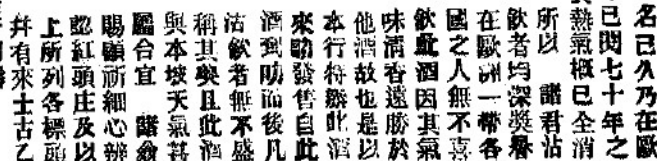 名已久乃在歐
已閱七十年之
熱氣概已全消
所以 諸君沽
飲者均深獎譽
在歐洲一帶各
國之人無不喜
飲此酒因其氣
味清香遠勝於
他酒故也是以
本行特辦此酒
來叻發售自此
酒到叻而後凡
沽飲者無不盛
稱其美且此酒
與本坡天氣甚
屬合宜 諸翁
賜顧祈細心辨
認紅頭庄及以
上所列各標頭
并有來士古乙